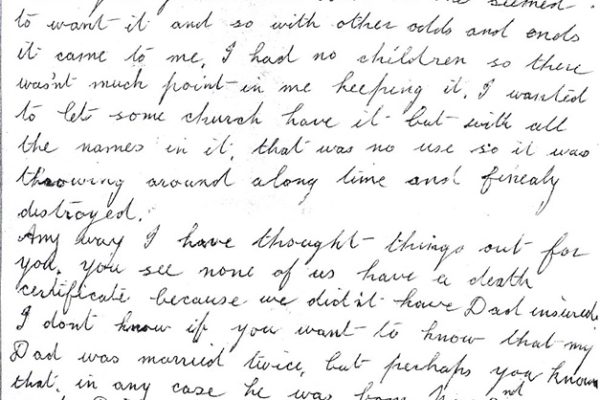 seemed
to want it and so with other odds and ends
it came to me, I had no children so there
wasn't much point in me keeping it. I wanted
to lets some church have it but with all
the names in it, that was no use so it was
throwing around along time and finealy
destroyed.
Any way I have thought things out for
you. you see none of us have a death
certificate because we did'nt have Dad insured.
I dont know if you want to know that my
Dad was married twice, but perhaps you know
that. in any case he was born